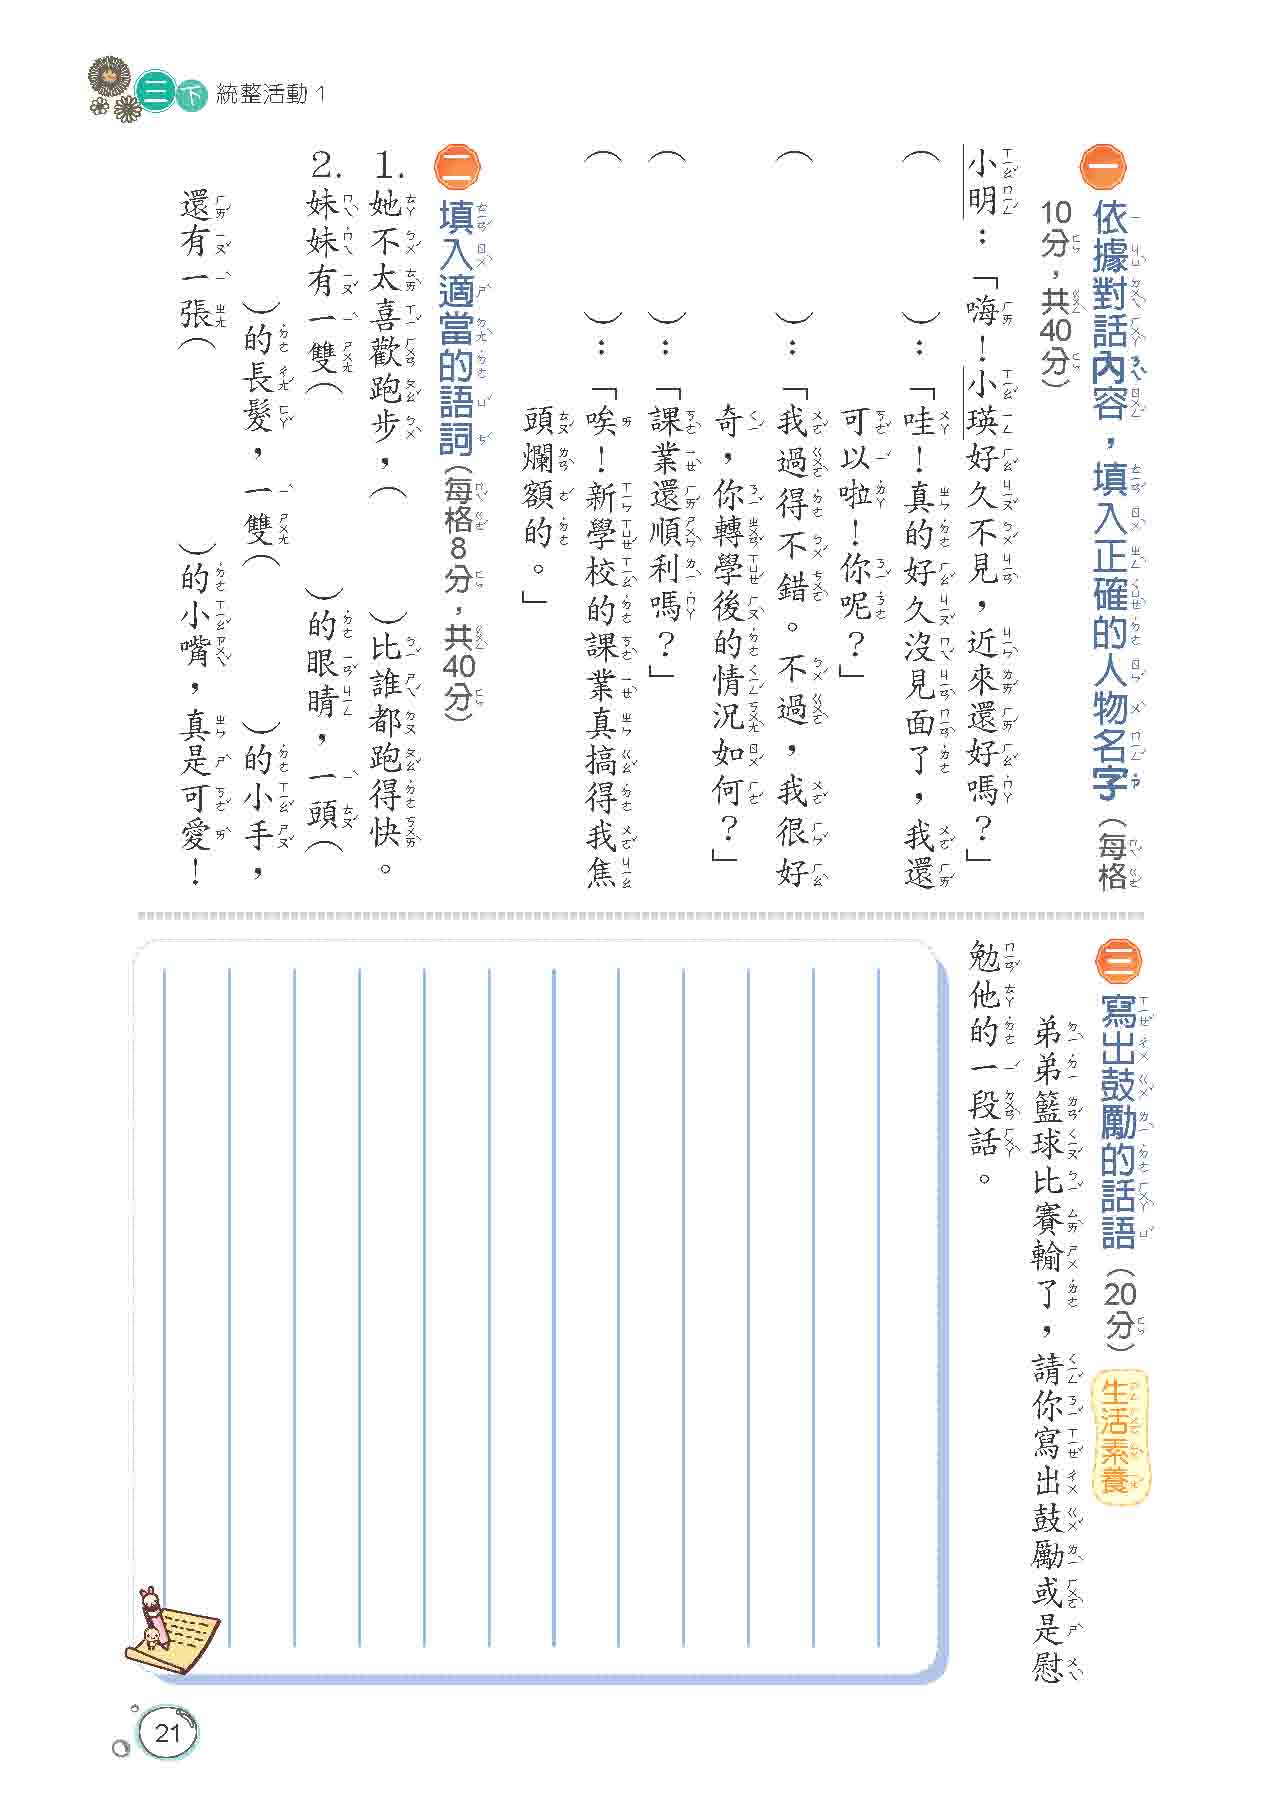 三下 統整活動1
一 依據對話內容，填入正確的人物名字（每格
10分，共40分）
小明：「嗨！小瑛好久不見，近來還好嗎？」
（　　　）：「哇！真的好久沒見面了，我還
可以啦！你呢？」
（　　　）：「我過得不錯。不過，我很好
奇，你轉學後的情況如何？」
（　　　）：「課業還順利嗎？」
（　　　）：「唉！新學校的課業真搞得我焦
頭爛額的。」
二 填入適當的語詞（每格8分，共40分）
1. 她不太喜歡跑步，（　　　）比誰都跑得快。
2. 妹妹有一雙（　　　）的眼睛，一頭（
　　　）的長髮，一雙（　　　）的小手，
還有一張（　　　）的小嘴，真是可愛！
三 寫出鼓勵的話語（20分） 生活素養
弟弟籃球比賽輸了，請你寫出鼓勵或是慰
勉他的一段話。
21